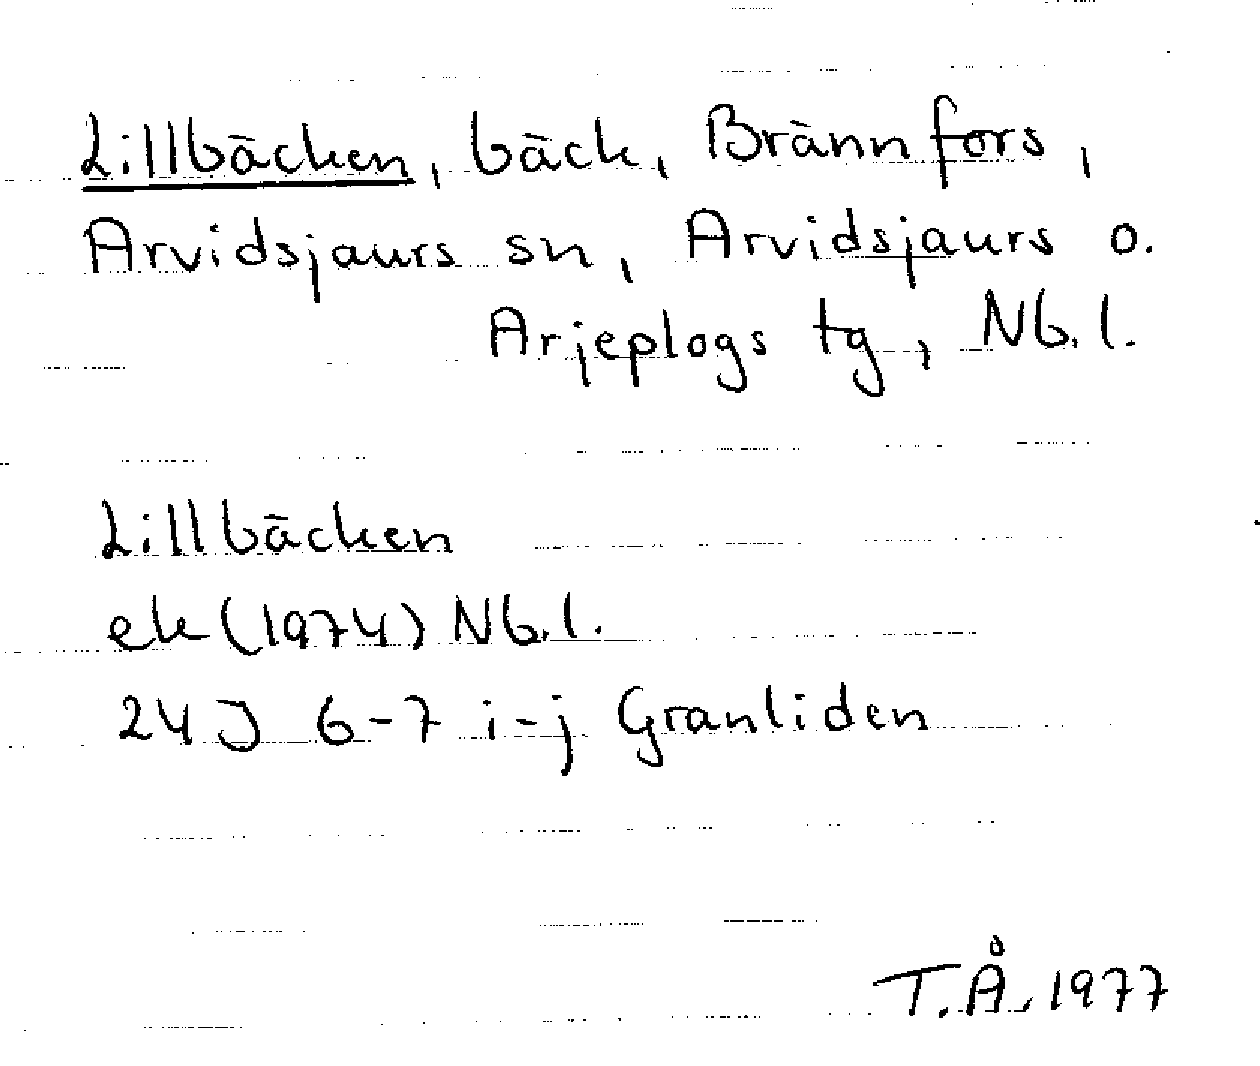 Lillbäcken, bäck, Brännfors,
Arvidsjaurs sn, Arvidsjaurs o.
Arjeplogs tg, Nb. l.
Lillbäcken
ek (1974) Nb. l.
24 J 6-7 i-j Granliden
T.Å. 1977